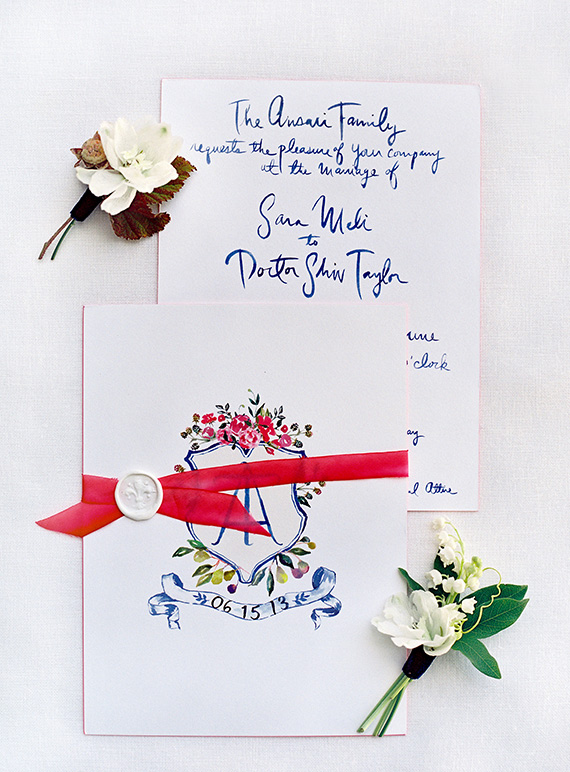 The Ansari Family
requests the pleasure of your company
at the marriage of
Sara Meli
to
Doctor Shiv Taylor
o'clock
Attire
06 15 13